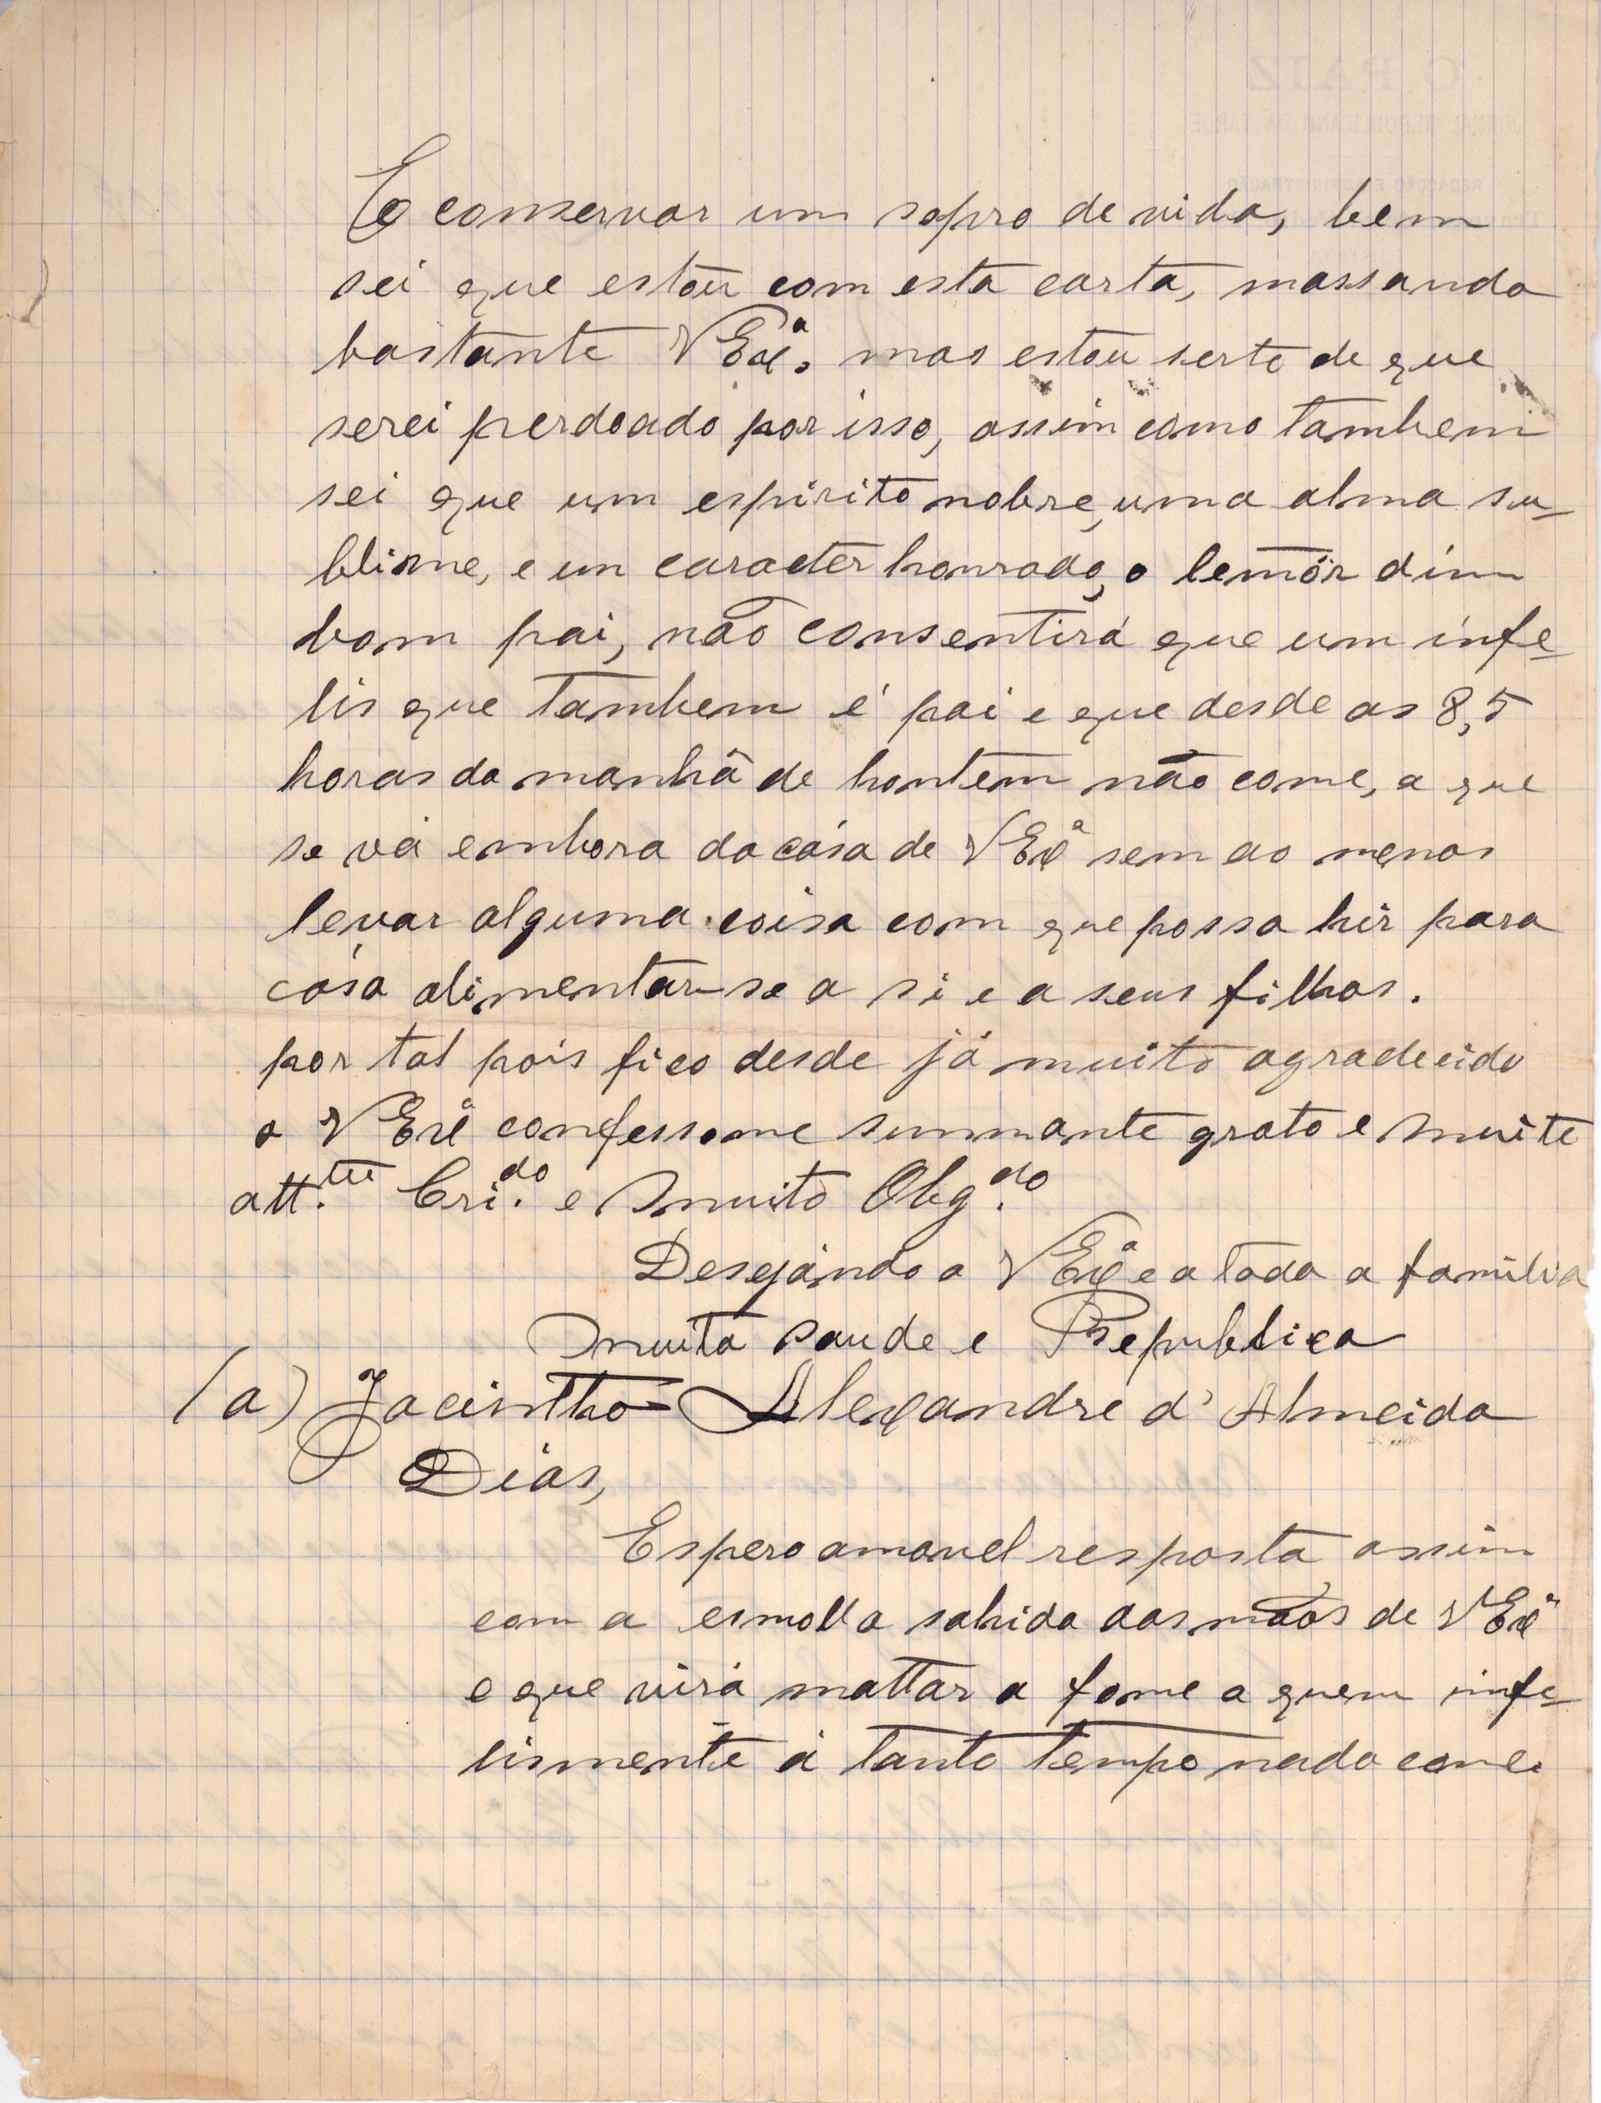 E conservar um sopro de vida, bem
sei que estou com esta carta, massando
bastante VExª. mas estou serto de que
serei perdoado por isso, assim como tambem
sei que um espirito nobre, uma alma su-
blime, e um caracter honrado, o lemôr dum
bom pai, não consentirá que um infe-
lis que tambem é pai e que desde as 8,5
horas da manhã de hontem não come, a que
se vá embora da cása de VExª sem ao menos
levar alguma coisa com que possa hir para
cása alimentar-se a si e a seus filhos.
por tal pois fico desde já muito agradecido
a VExª confessome summante grato e muite
att.te Cri.do e Muito Obg.do
Desejándo a VExª e a toda a familia
Muita Saude e Republica
(a) Jacintho Alexandre d'Almeida
Diás,
Espero amavel resposta assim
com a esmolla sahida das mãos de VExª
e que virá mattar a fome a quem infe-
lismente á tanto tempo nada come.